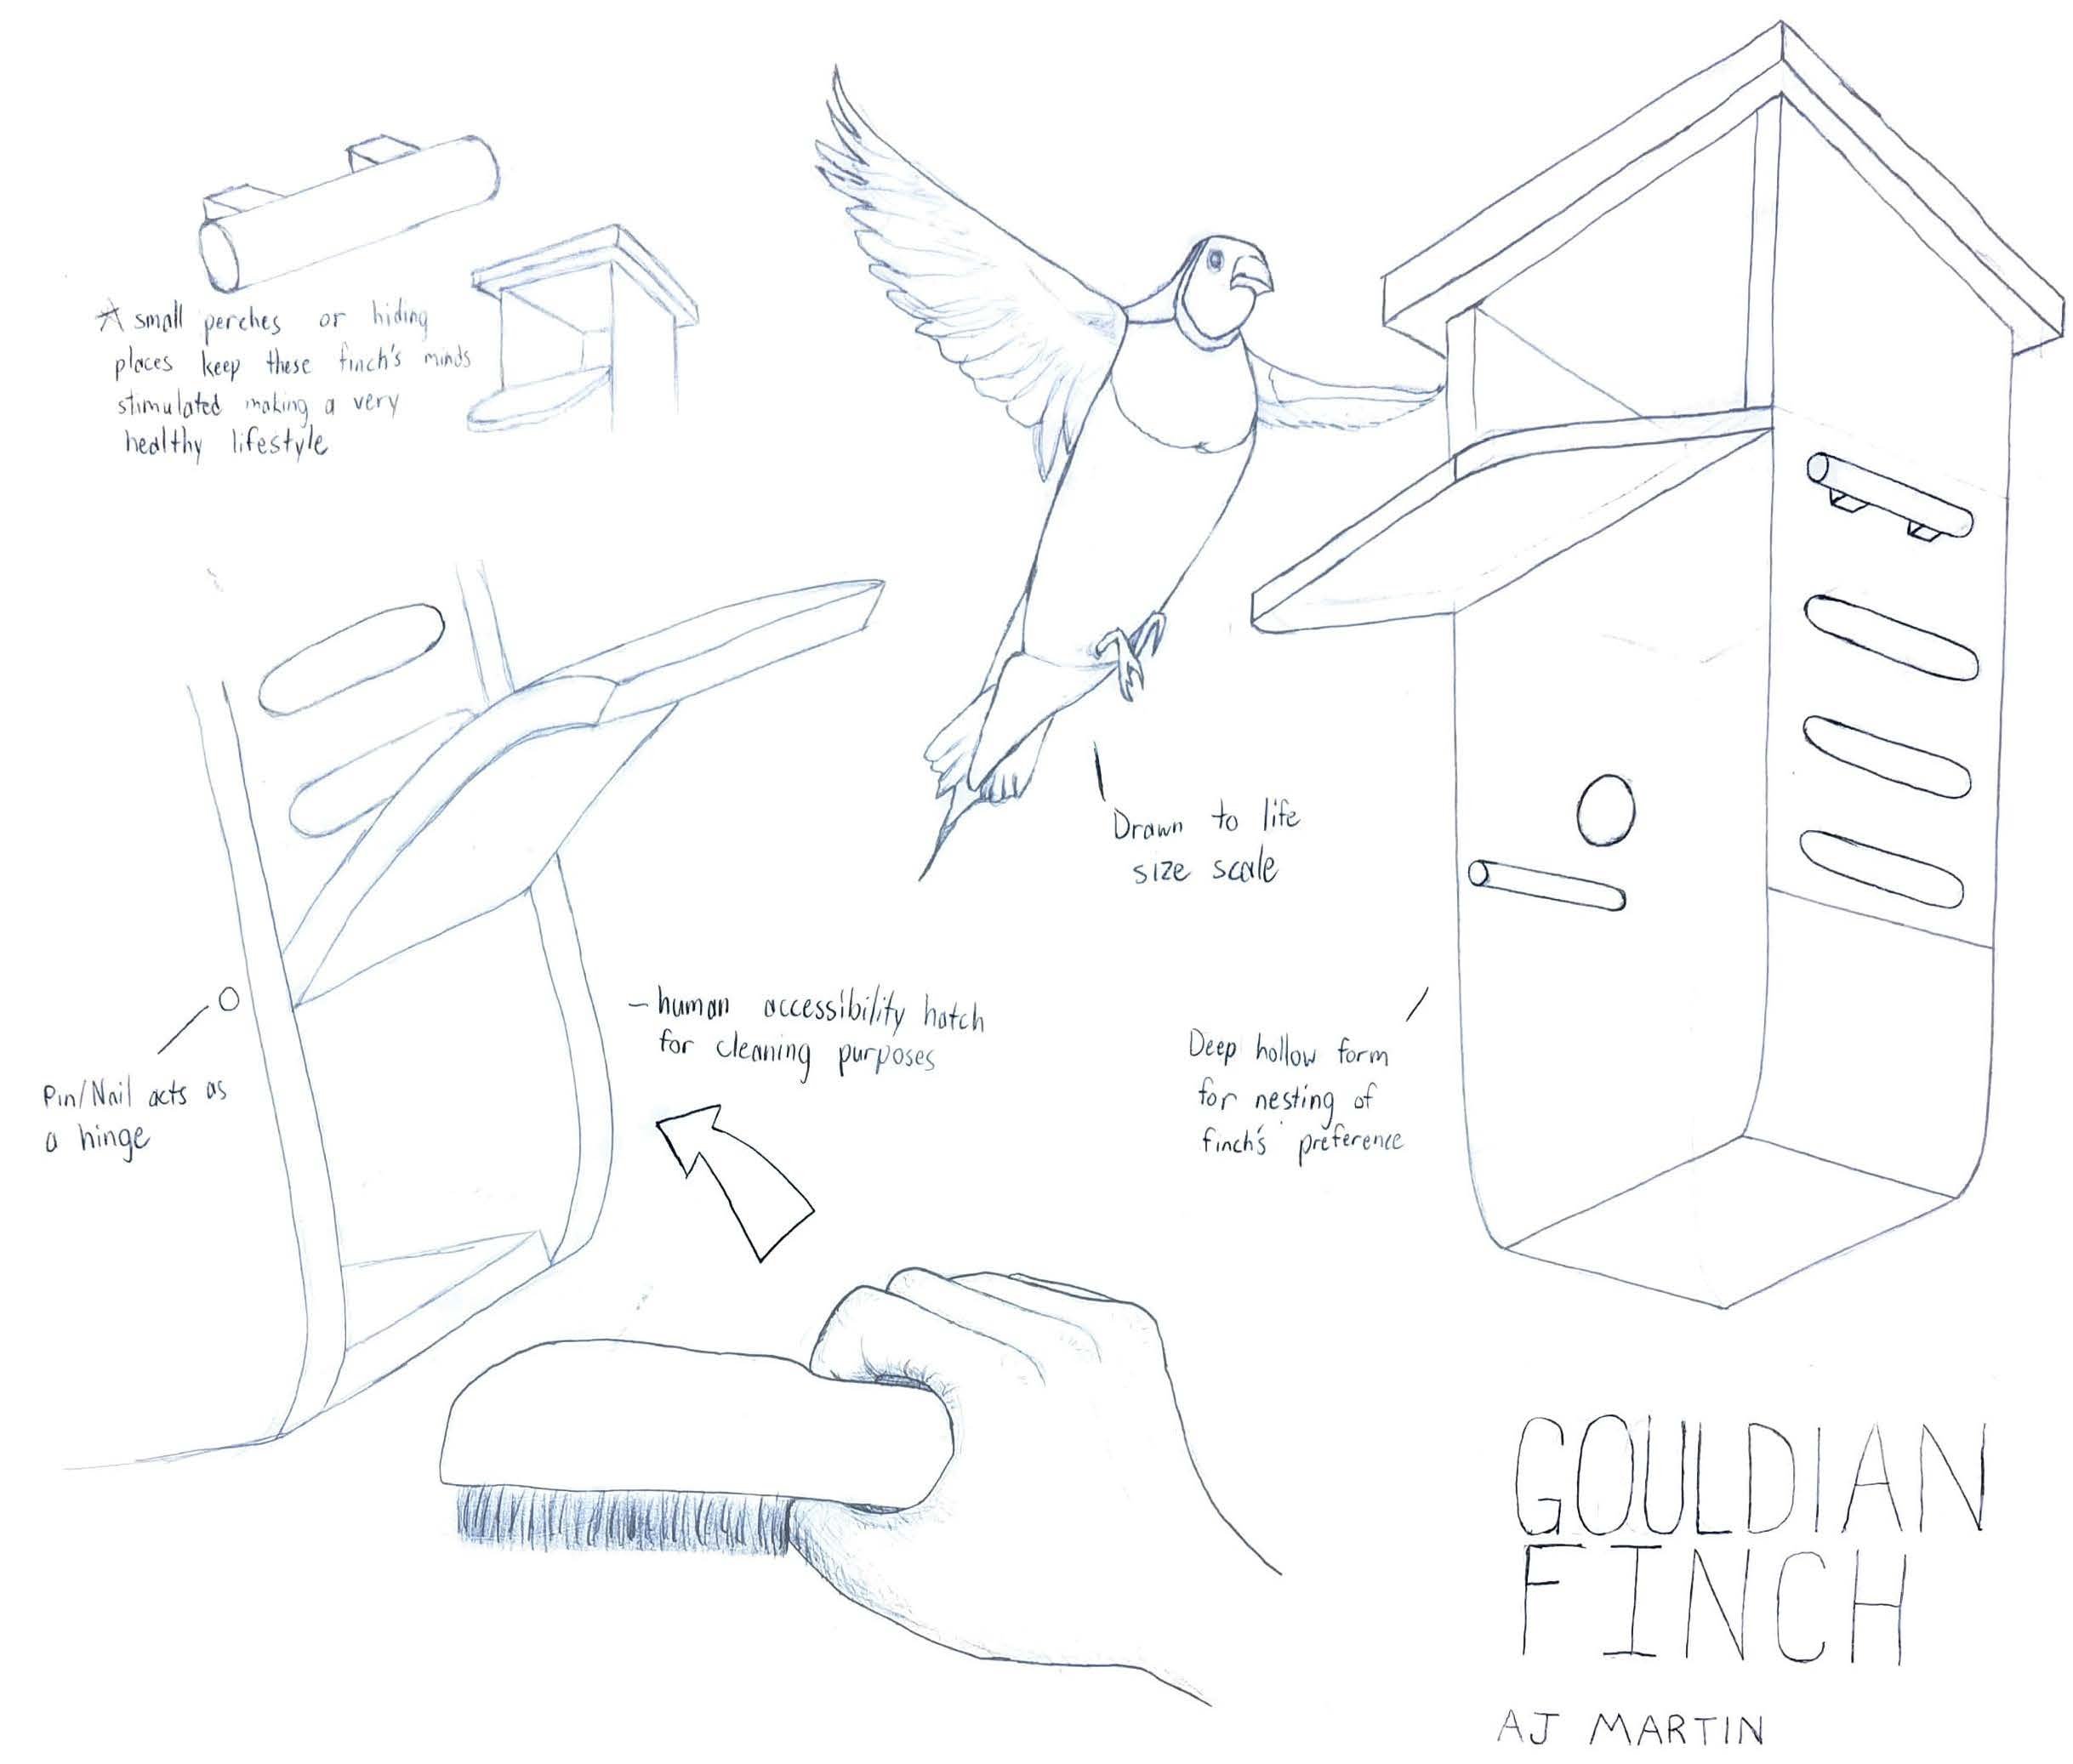 ☆ small perches or hiding
places keep these finch's minds
stimulated making a very
healthy lifestyle
Drawn to life
size scale
– human accessibility hatch
for cleaning purposes
Pin/Nail acts as
a hinge
Deep hollow form
for nesting of
finch's preference
GOULDIAN
FINCH
AJ MARTIN